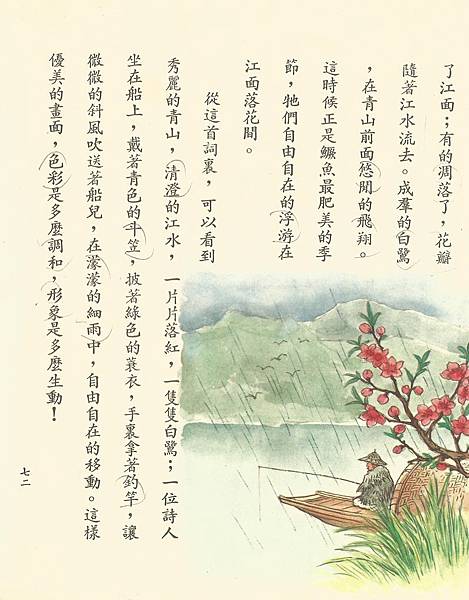 了江面；有的凋落了，花瓣
隨著江水流去。成羣的白鷺
，在青山前面悠閒的飛翔。
這時候正是鱖魚最肥美的季
節，牠們自由自在的浮游在
江面落花間。
從這首詞裏，可以看到
秀麗的青山，清澄的江水，一片片落紅，一隻隻白鷺；一位詩人
坐在船上，戴著青色的斗笠，披著綠色的蓑衣，手裏拿著釣竿，讓
微微的斜風吹送著船兒，在濛濛的細雨中，自由自在的移動。這樣
優美的畫面，色彩是多麼調和，形象是多麼生動！
七二